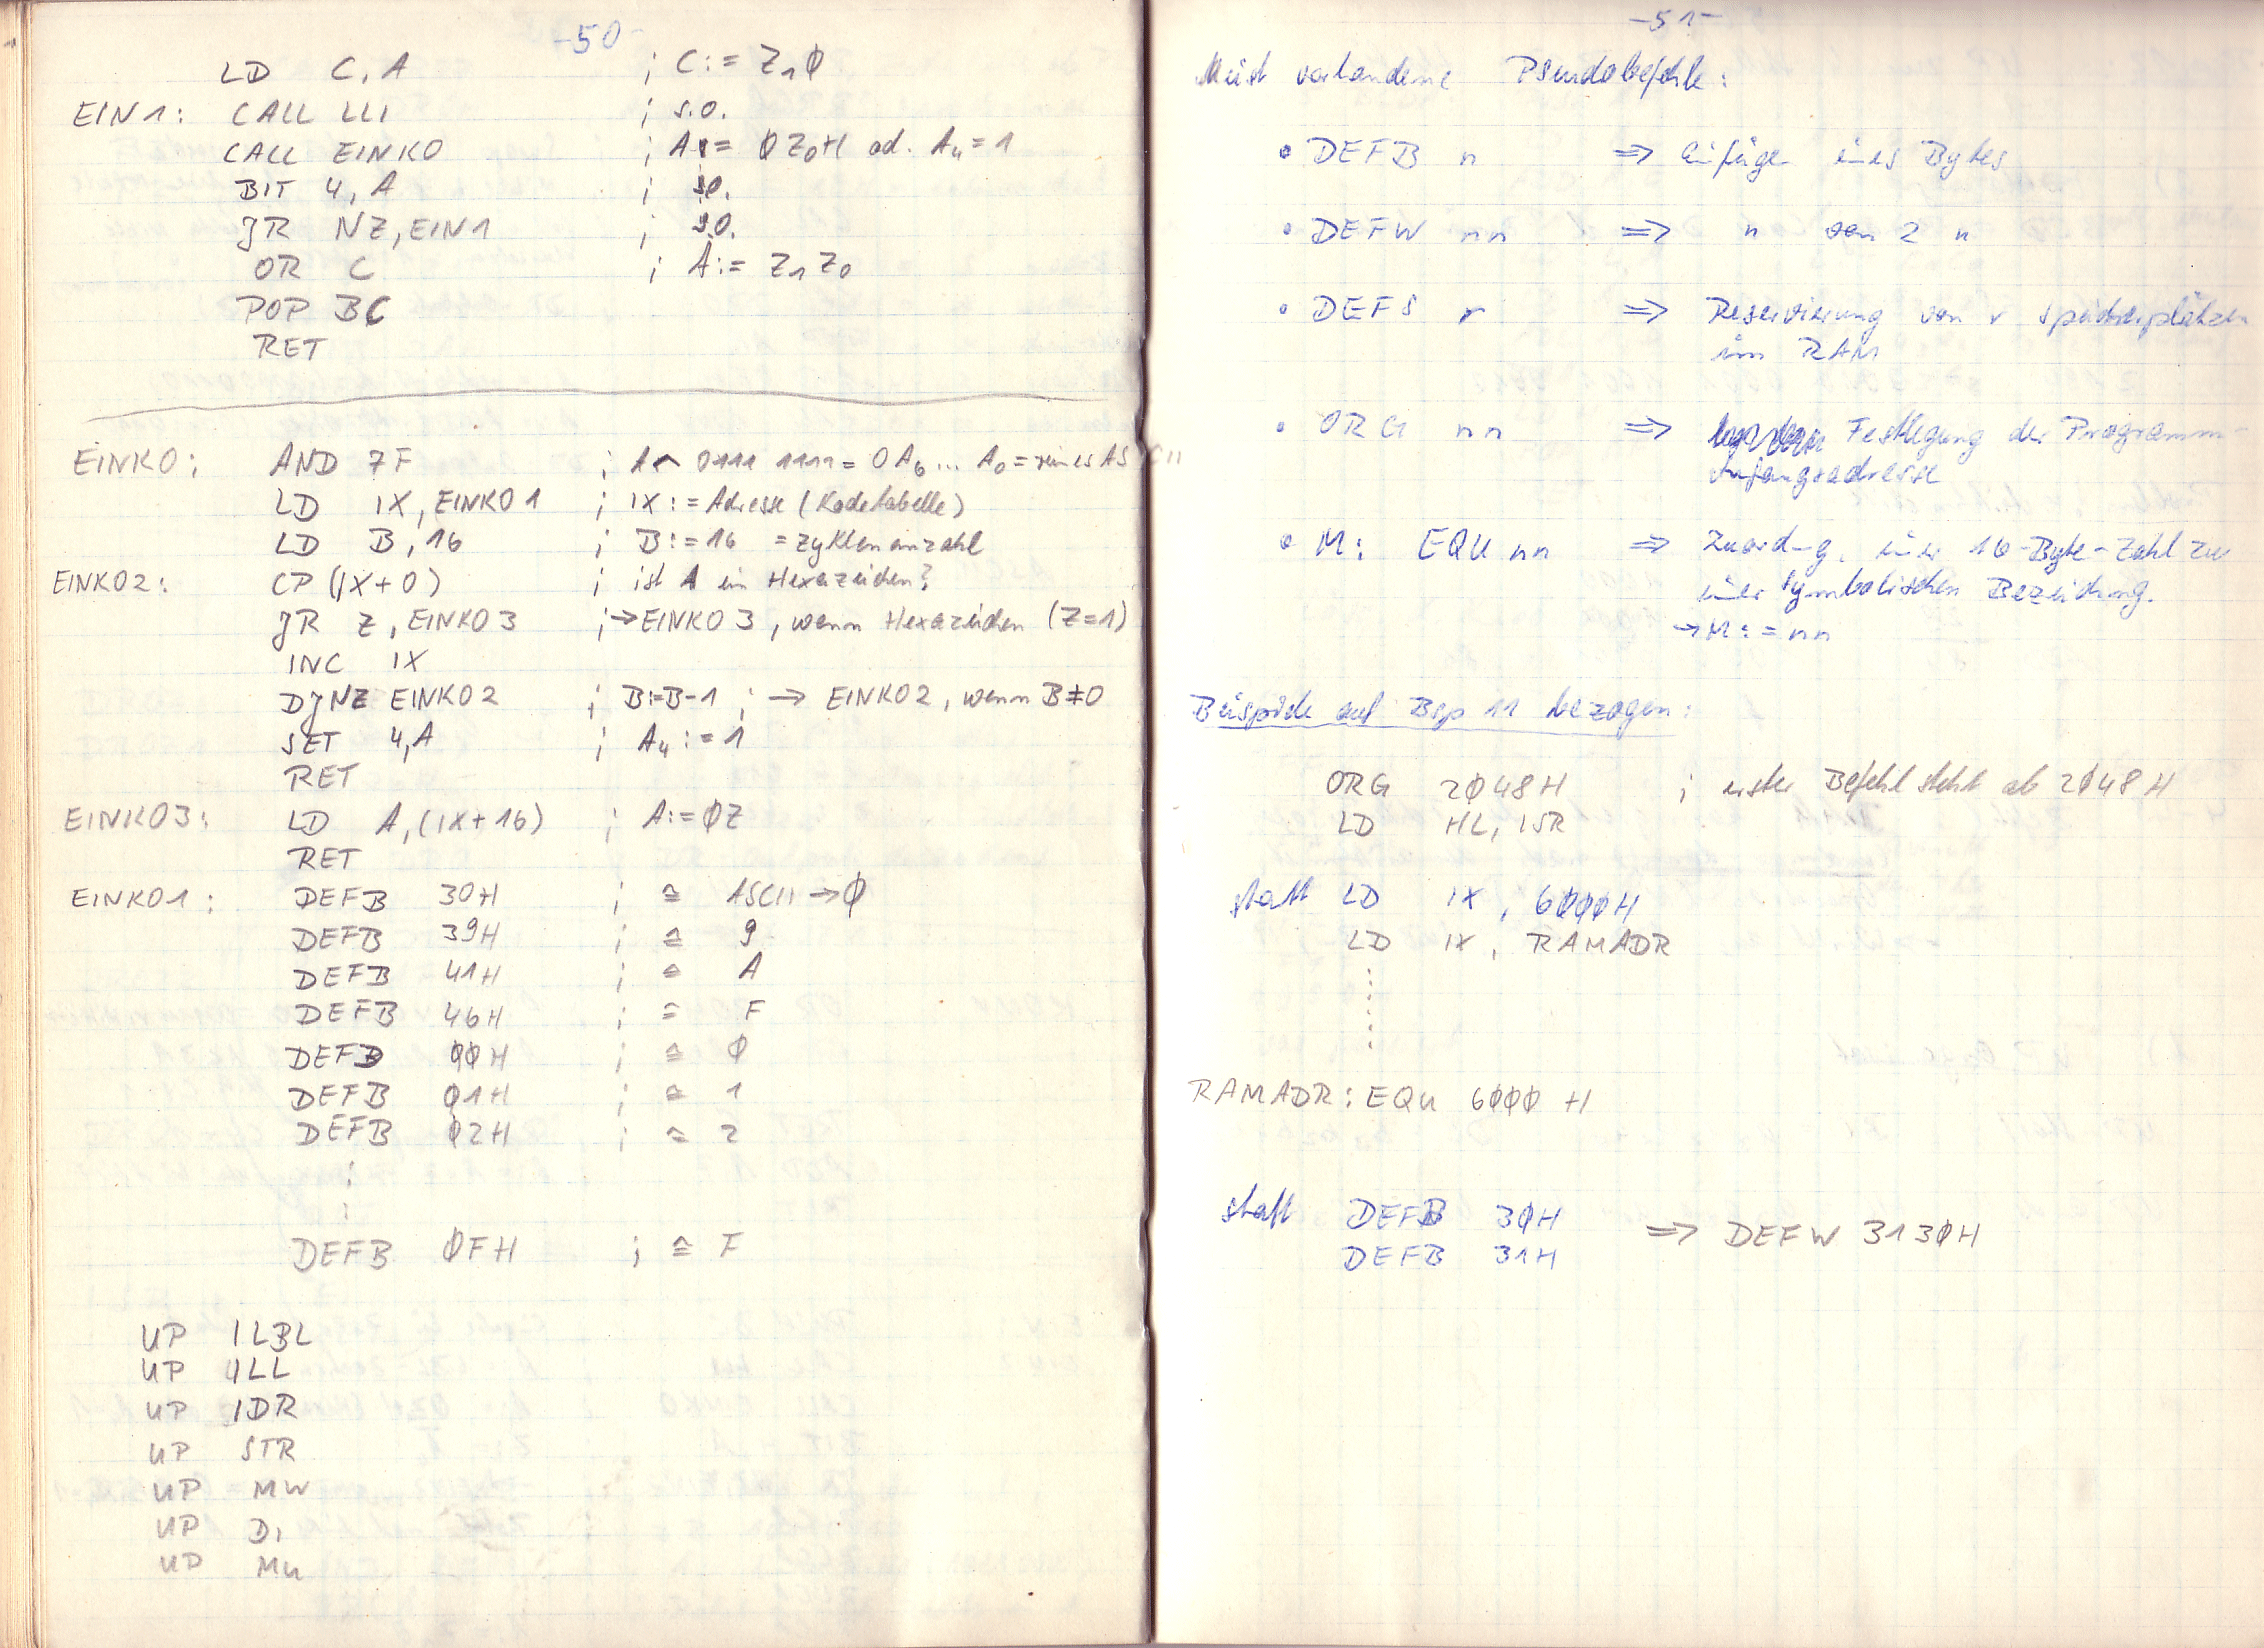 -50-
LD C, A ; C:= Z1Ø
EIN1: CALL LLI ; s.o.
CALL EINKO ; A:= ØZ0H od. A4=1
BIT 4, A ; s.o.
JR NZ, EIN1 ; s.o.
OR C ; A:= Z1 Z0
POP BC
RET
EINKO: AND 7F ; A∧ 0111 1111 = 0A6 ... A0 = reines ASCII
LD IX, EINKO1 ; IX:= Adresse (Kodetabelle)
LD B, 16 ; B:=16 = Zyklenanzahl
EINKO2: CP (IX+0) ; ist A ein Hexazeichen?
JR Z, EINKO3 ; → EINKO3, wenn Hexazeichen (Z=1)
INC IX
DJNZ EINKO2 ; B:=B-1 ; → EINKO2, wenn B≠0
SET 4,A ; A4:=1
RET
EINKO3: LD A,(IX+16) ; A:=ØZ
RET
EINKO1: DEFB 30H ; ≙ ASCII → Ø
DEFB 39H ; ≙ 9
DEFB 41H ; ≙ A
DEFB 46H ; ≙ F
DEFB ØØH ; ≙ Ø
DEFB Ø1H ; ≙ 1
DEFB Ø2H ; ≙ 2
:
:
DEFB ØFH ; ≙ F
UP ILBL
UP ULL
UP IDR
UP STR
UP MW
UP DI
UP MU
-51-
Meist vorhandene Pseudobefehle:
• DEFB n ⇒ Einfügen eines Bytes
• DEFW nn ⇒ " von 2 "
• DEFS r ⇒ Reservierung von r Speicherplätzen
im RAM
• ORG nn ⇒ Festlegung der Programm-
Anfangsadresse
• M: EQU nn ⇒ Zuordng. einer 16-Byte-Zahl zu
einer symbolischen Bezeichung.
→ M:=nn
Beispiele auf Bsp 11 bezogen:
ORG 2Ø48H ; erster Befehl steht ab 2Ø48H
LD HL, ISR
statt LD IX, 6ØØØH
LD IX, RAMADR
RAMADR: EQU 6ØØØ H
statt DEFB 3ØH
⇒ DEFW 313ØH
DEFB 31H